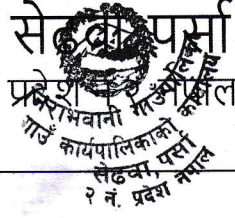 सेढवा, पर्सा
प्रदेश नं. २ नेपाल
जिराभवानी गाउँपालिका
गाउँ कार्यपालिकाको कार्यालय
सेढवा, पर्सा
२ नं. प्रदेश नेपाल